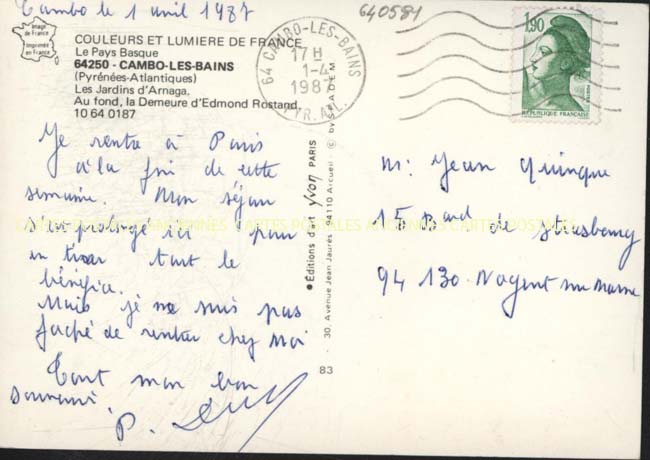 Cambo le 1 avril 1987
640581
Image de France
Imprimée en France
COULEURS ET LUMIERE DE FRANCE
Le Pays Basque
64250 - CAMBO-LES-BAINS
(Pyrénées-Atlantiques)
Les Jardins d'Arnaga.
Au fond, la Demeure d'Edmond Rostand.
10 64 0187
64 CAMBO-LES-BAINS
17 H
1-4
198
PYR. ATL.
1,90
REPUBLIQUE FRANÇAISE
Je rentre à Paris
à la fin de cette
semaine. Mon séjour
s'est prolongé ici pour
en tirer tout le
bénéfice.
Mais je ne suis pas
fâché de rentrer chez moi
Tout mon bon
souvenir.
P.
Editions d'art yvon PARIS
30, Avenue Jean Jaurès - 94110 Arcueil - © by SPADEM
83
Mr Jean Quinque
15 Bard de Strasbourg
94 130 - Nogent sur Marne
CARTES POSTALES ANCIENNES CARTES POSTALES